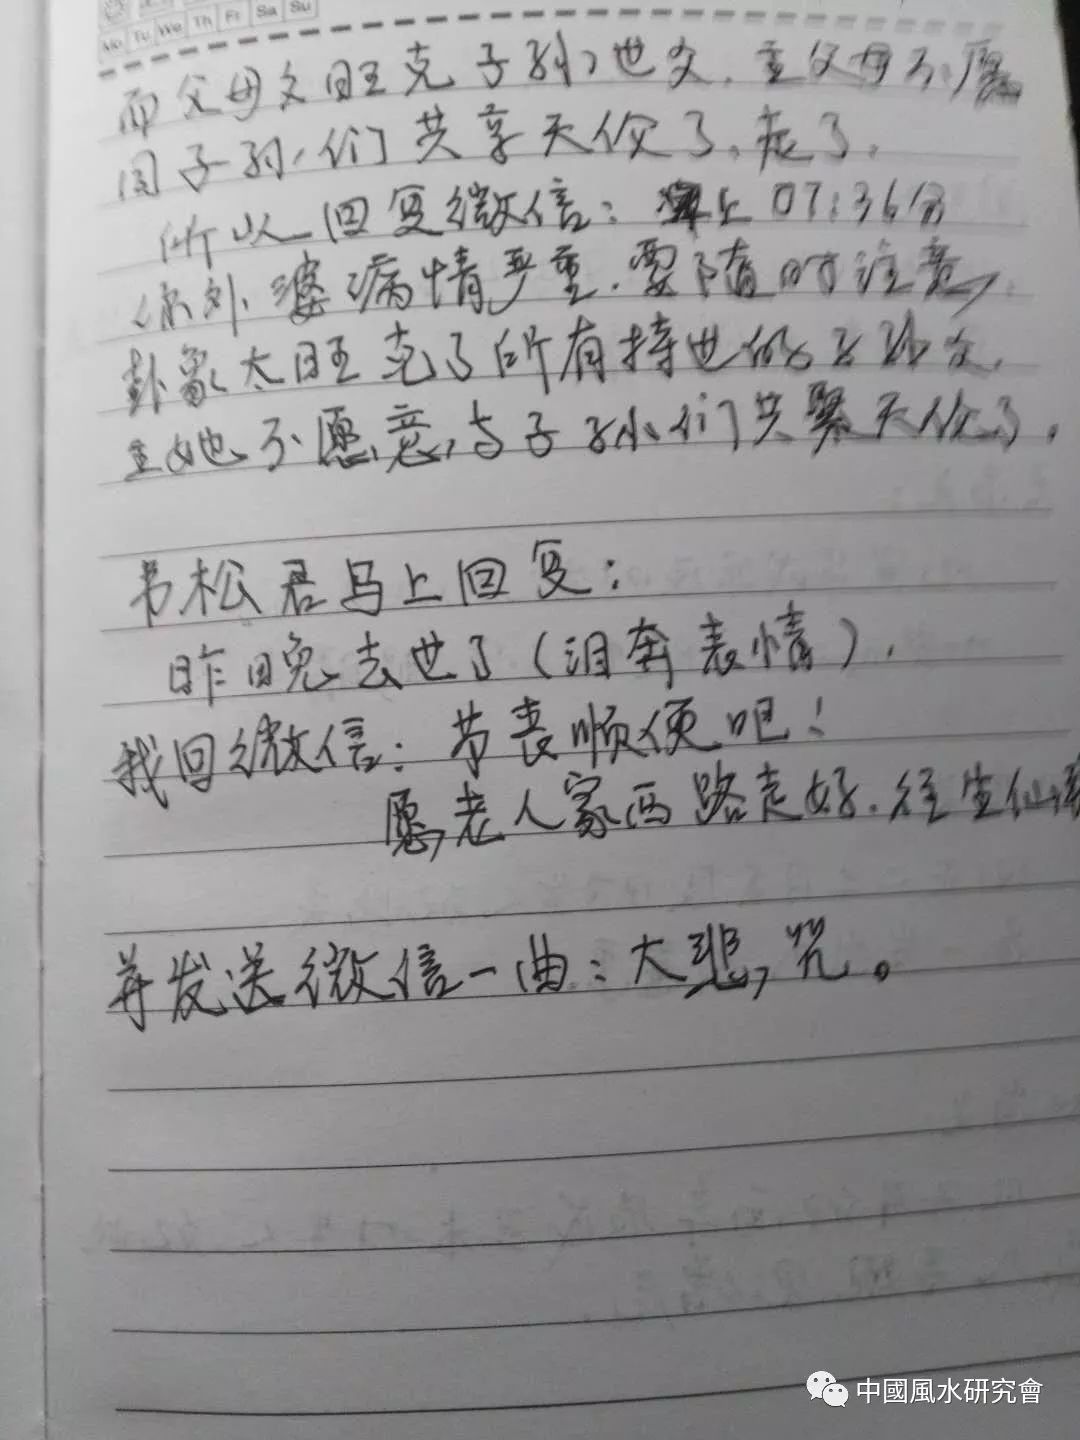 Mo Tu We Th Fr Sa Su
而父母爻旺克子孙世爻，主父母不愿
同子孙们共享天伦了，走了。
所以回复微信：早上07:36分
你外婆病情严重，要随时注意，
卦象太旺克了所有持世的子孙爻，
主她不愿意与子孙们共聚天伦了。
韦松君马上回复：
昨晚去世了（泪奔表情）。
我回微信：节丧顺便吧！
愿老人家西路走好，往生仙
并发送微信一曲：大悲咒。
中國風水研究會